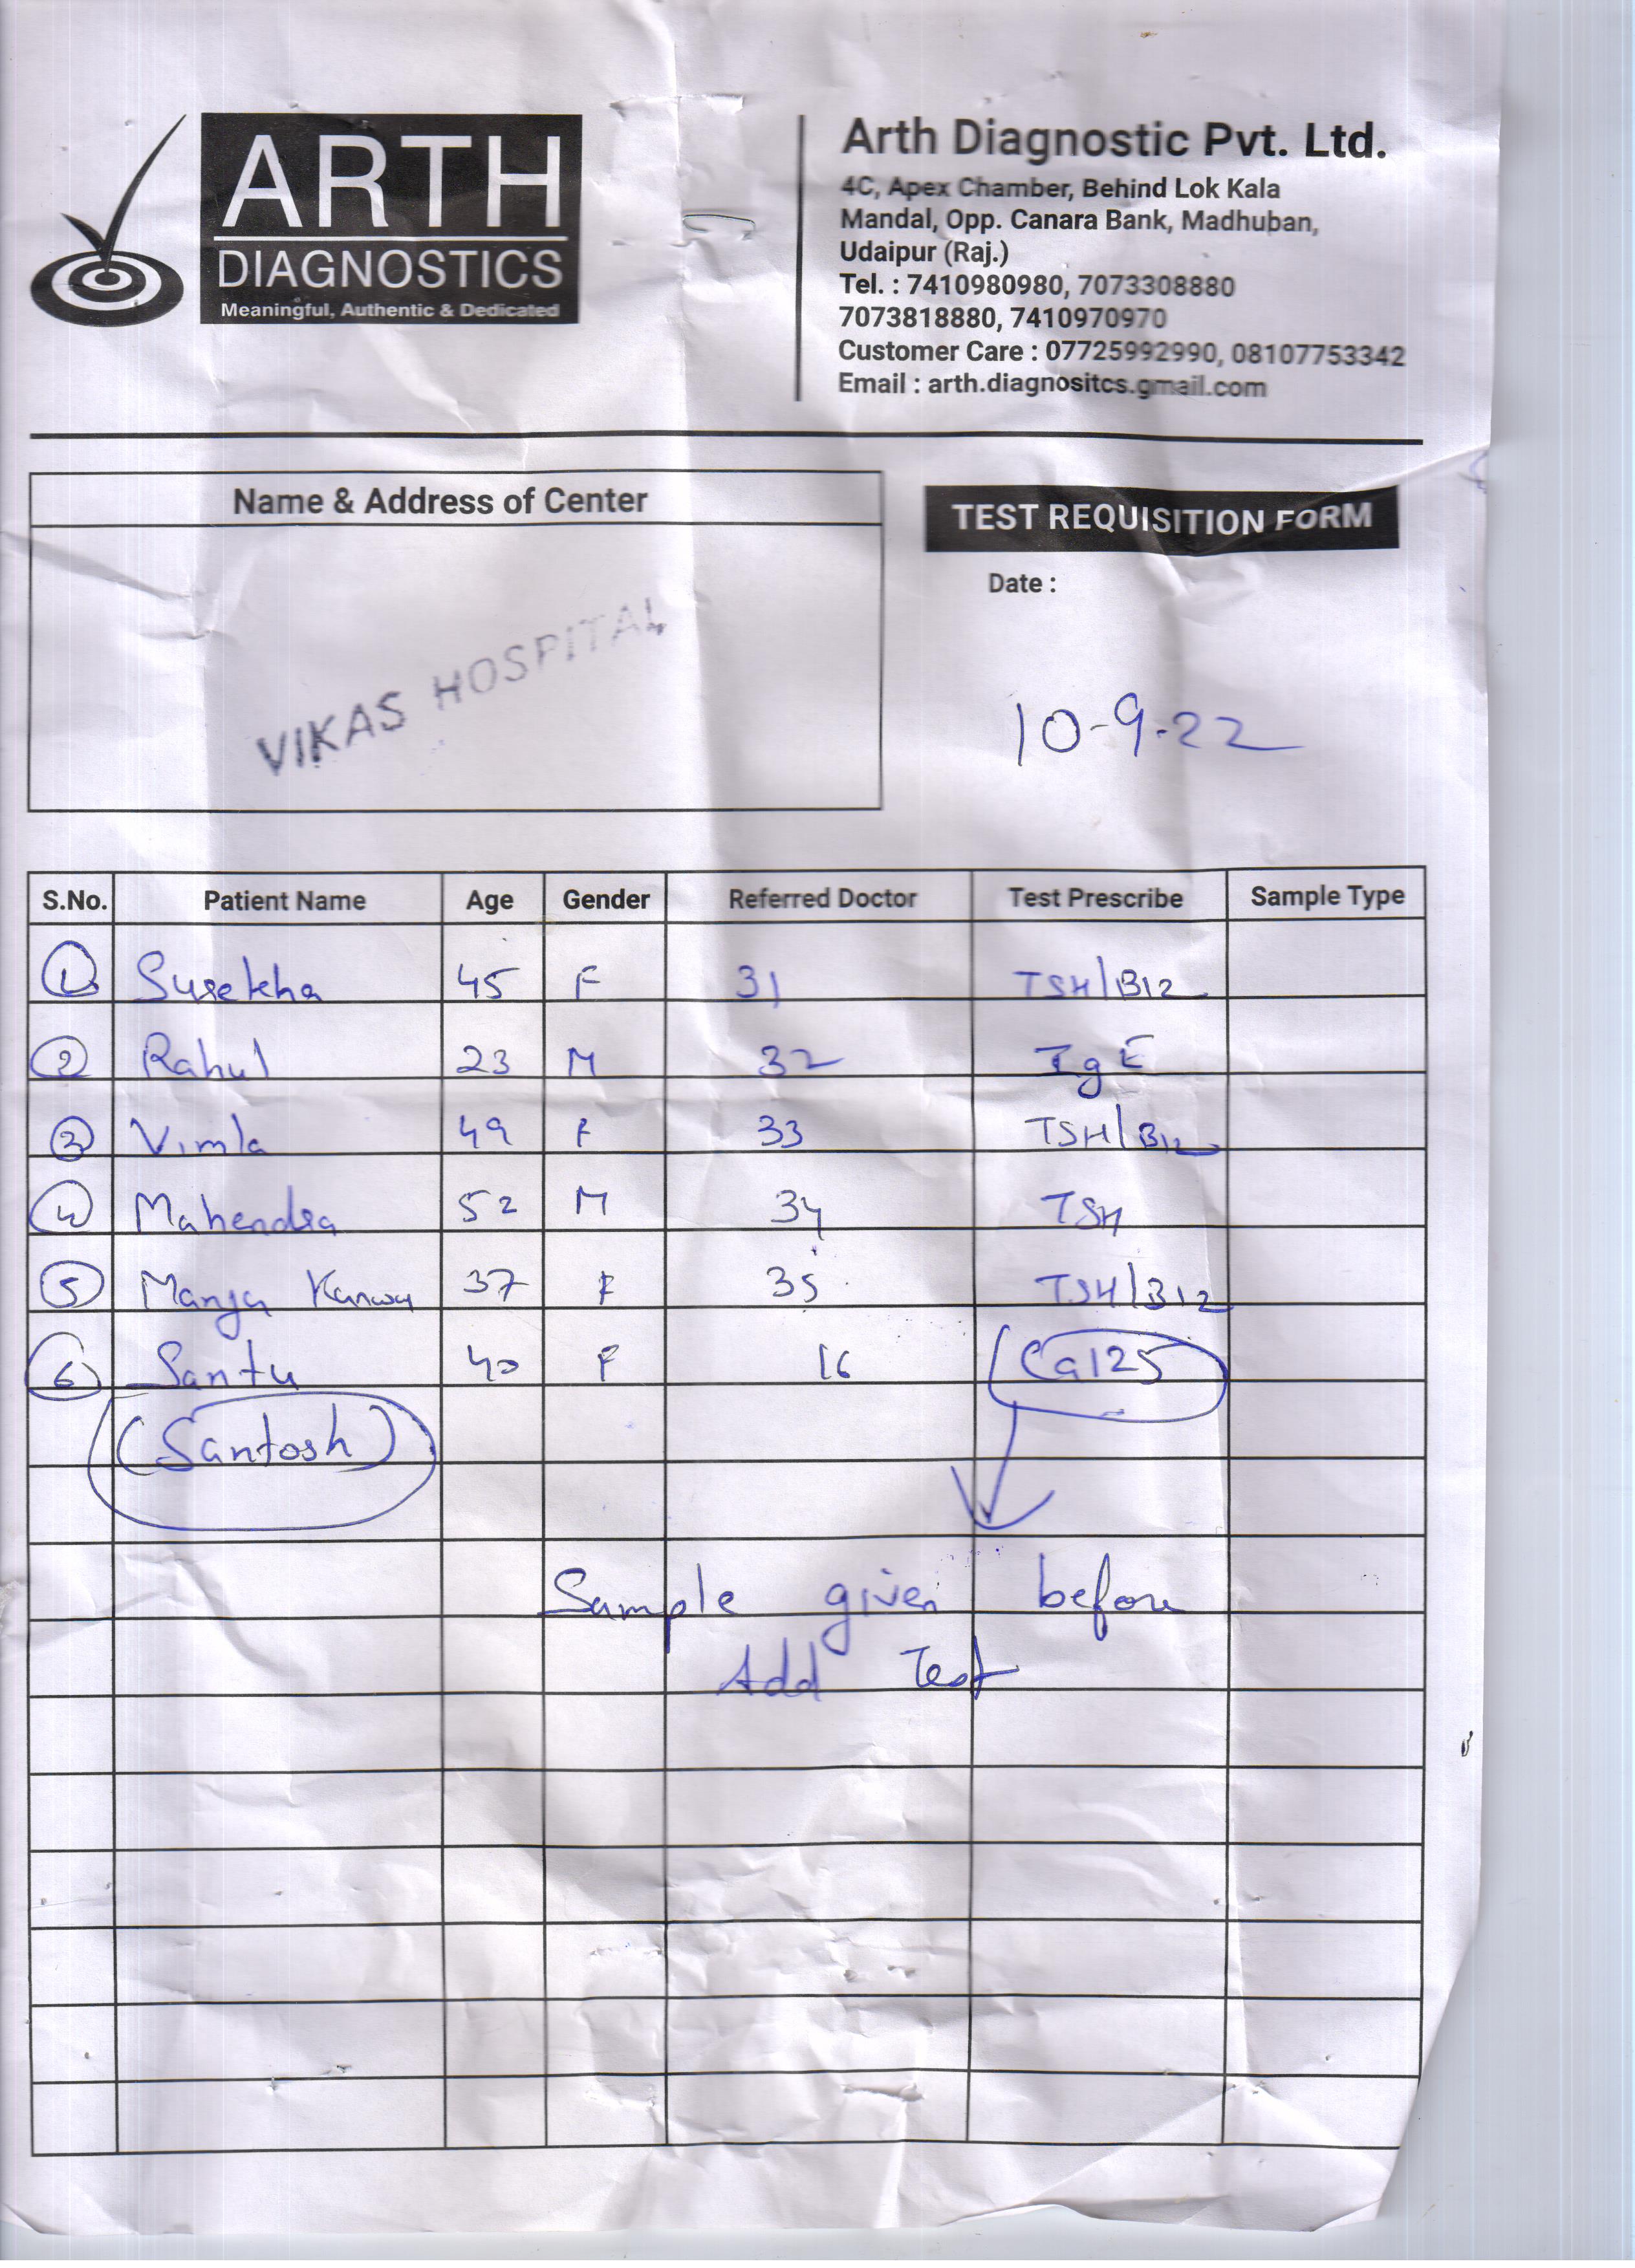 ARTH
DIAGNOSTICS
Meaningful, Authentic & Dedicated
Arth Diagnostic Pvt. Ltd.
4C, Apex Chamber, Behind Lok Kala
Mandal, Opp. Canara Bank, Madhuban,
Udaipur (Raj.)
Tel. : 7410980980, 7073308880
7073818880, 7410970970
Customer Care : 07725992990, 08107753342
Email : arth.diagnositcs.gmail.com
Name & Address of Center
VIKAS HOSPITAL
TEST REQUISITION FORM
Date :
10-9-22
S.No. Patient Name Age Gender Referred Doctor Test Prescribe Sample Type
1 Surekha 45 F 31 TSH/B12
2 Rahul 23 M 32 IgE
3 Vimla 49 F 33 TSH/B12
4 Mahendra 52 M 34 TSH
5 Manju 37 F 35 TSH/B12
6 Santu 40 F 16 (Ca125
(Santosh)
Sample given before
Add Test